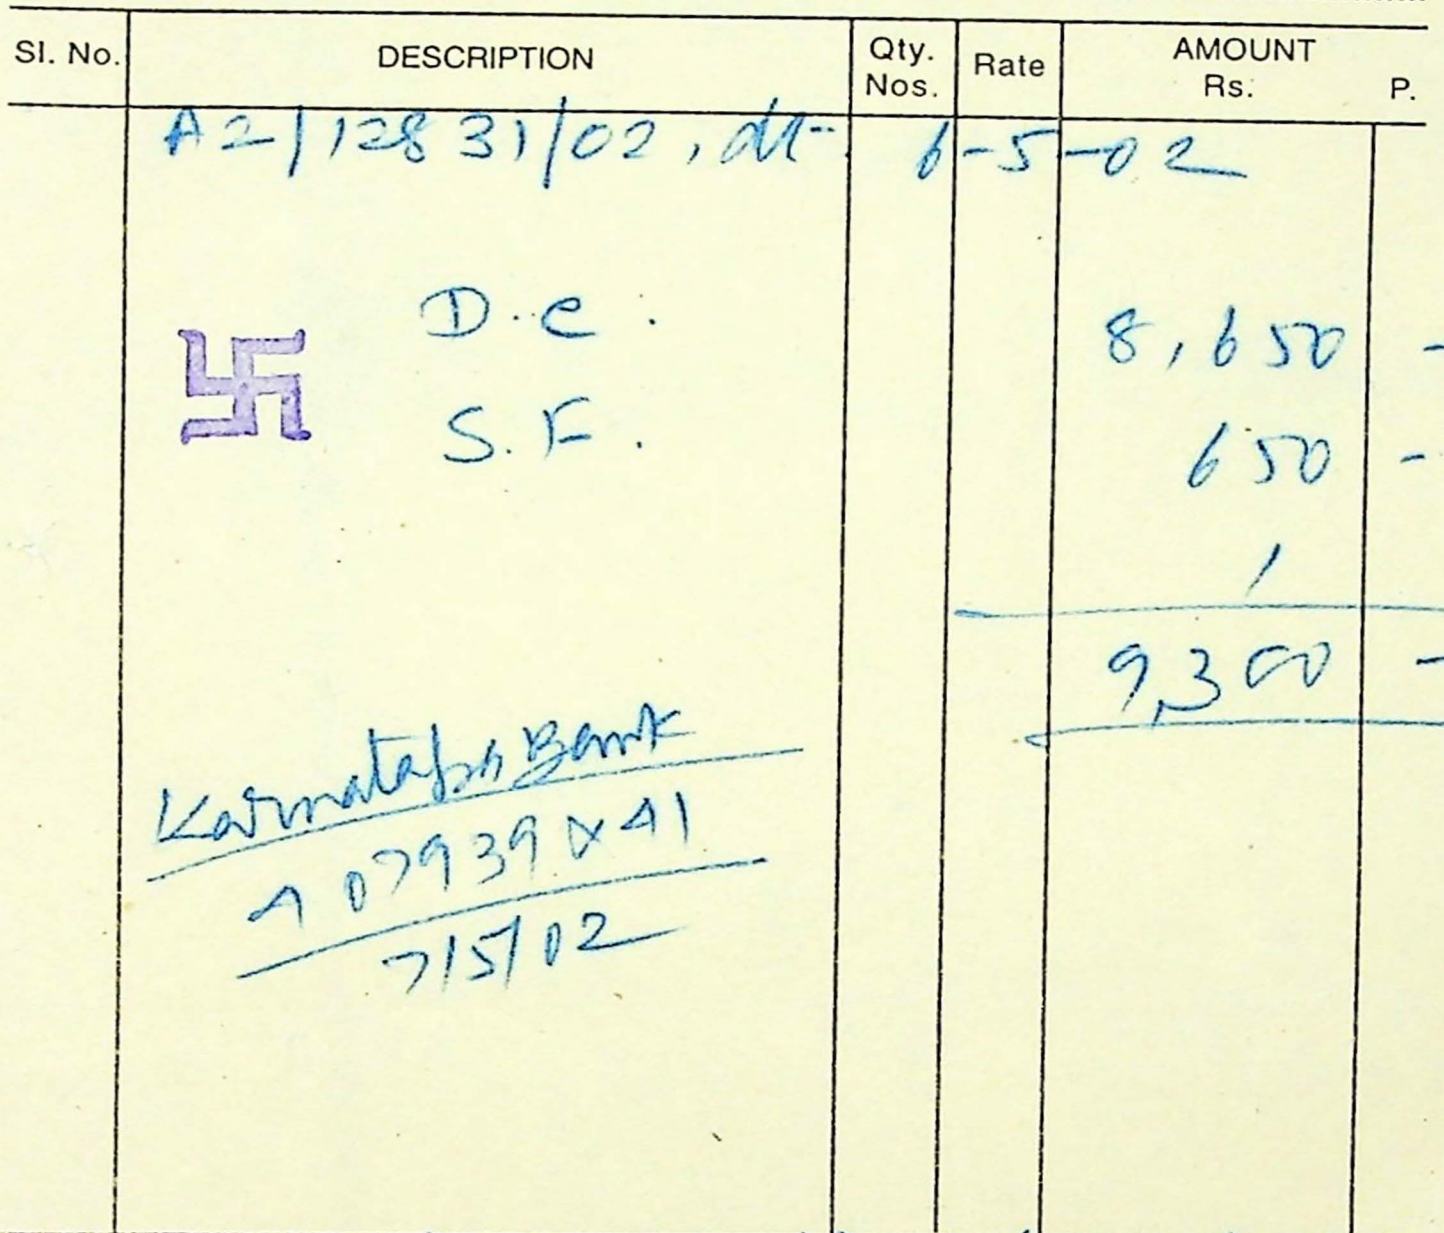 Sl. No. DESCRIPTION Qty. Nos. Rate AMOUNT Rs. P.
A2/12831/02, dt. 6-5-02
D.C. 8,650 -
S.F. 650 -
9,300 -
Karnataka Bank
7/5/02